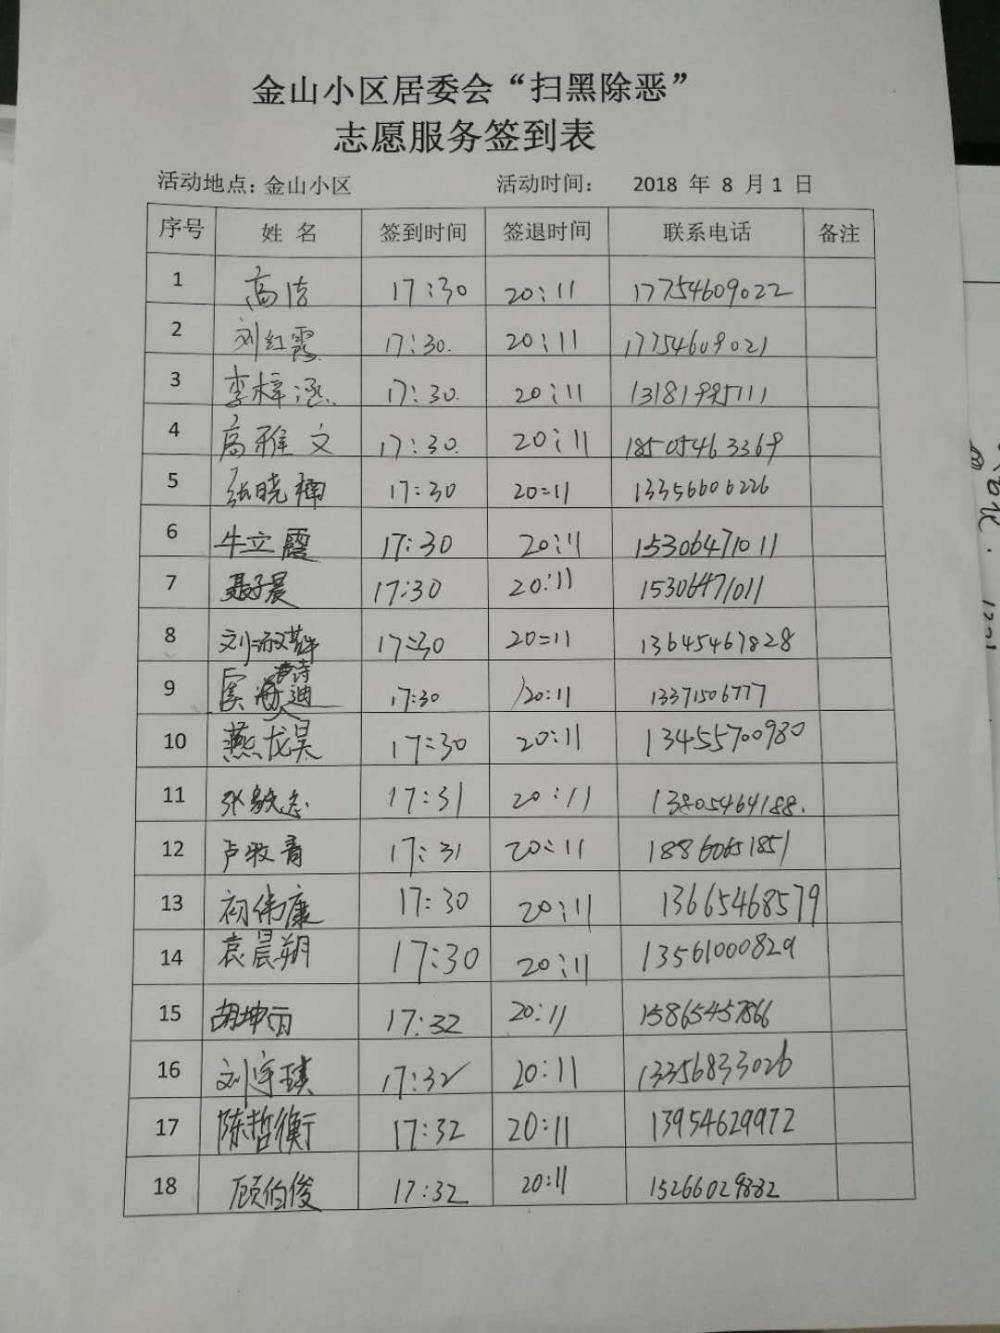 金山小区居委会“扫黑除恶”
志愿服务签到表
活动地点：金山小区 活动时间： 2018 年 8 月 1 日
序号 姓 名 签到时间 签退时间 联系电话 备注
1 高洁 17:30 20:11 17754609022
2 刘红霞 17:30. 20:11 17754609021
3 李梓涵 17:30. 20:11 13181995111
4 高雅文 17:30. 20:11 18505463369
5 张晓楠 17:30 20:11 13356606226
6 牛立霞 17:30 20:11 15306471011
7 聂子晨 17:30 20:11 15306471011
8 刘淑辉 17:30 20:11 13645467828
9 17:30 20:11 13371506777
10 燕龙昊 17:30 20:11 13455700980
11 张毅志 17:31 20:11 13805464188.
12 卢牧青 17:31 20:11 18860651851
13 初伟康 17:30 20:11 13665468579
14 袁晨朔 17:30 20:11 13561000829
15 胡坤丽 17:32 20:11 15865457866
16 刘宇琪 17:32 20:11 13356833026
17 陈哲衡 17:32 20:11 13954629972
18 顾伯俊 17:32 20:11 15266029882